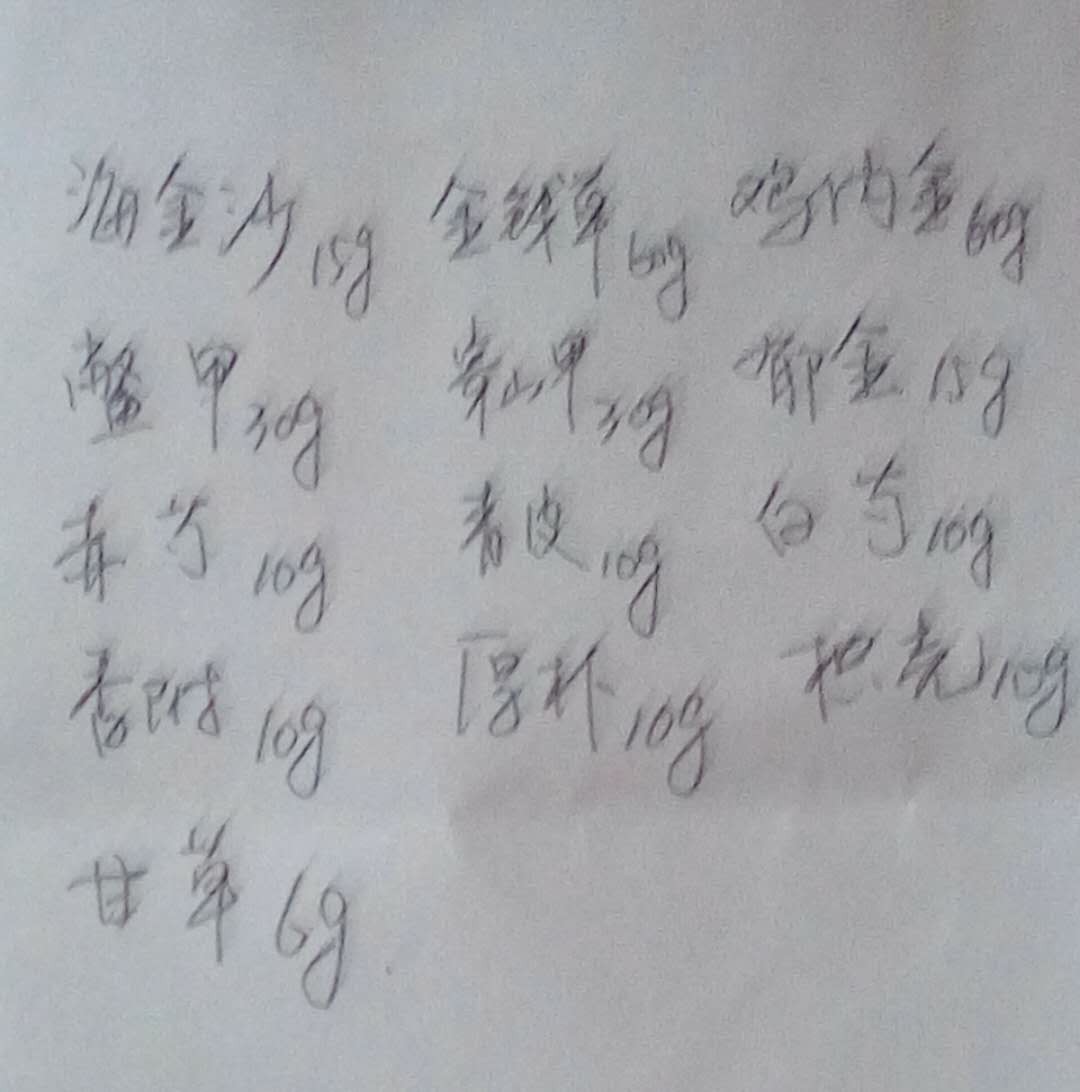 海金沙15g 金钱草60g 鸡内金60g
鳖甲30g 穿山甲30g 郁金15g
赤芍10g 青皮10g 白芍10g
香附10g 厚朴10g 枳壳10g
甘草6g